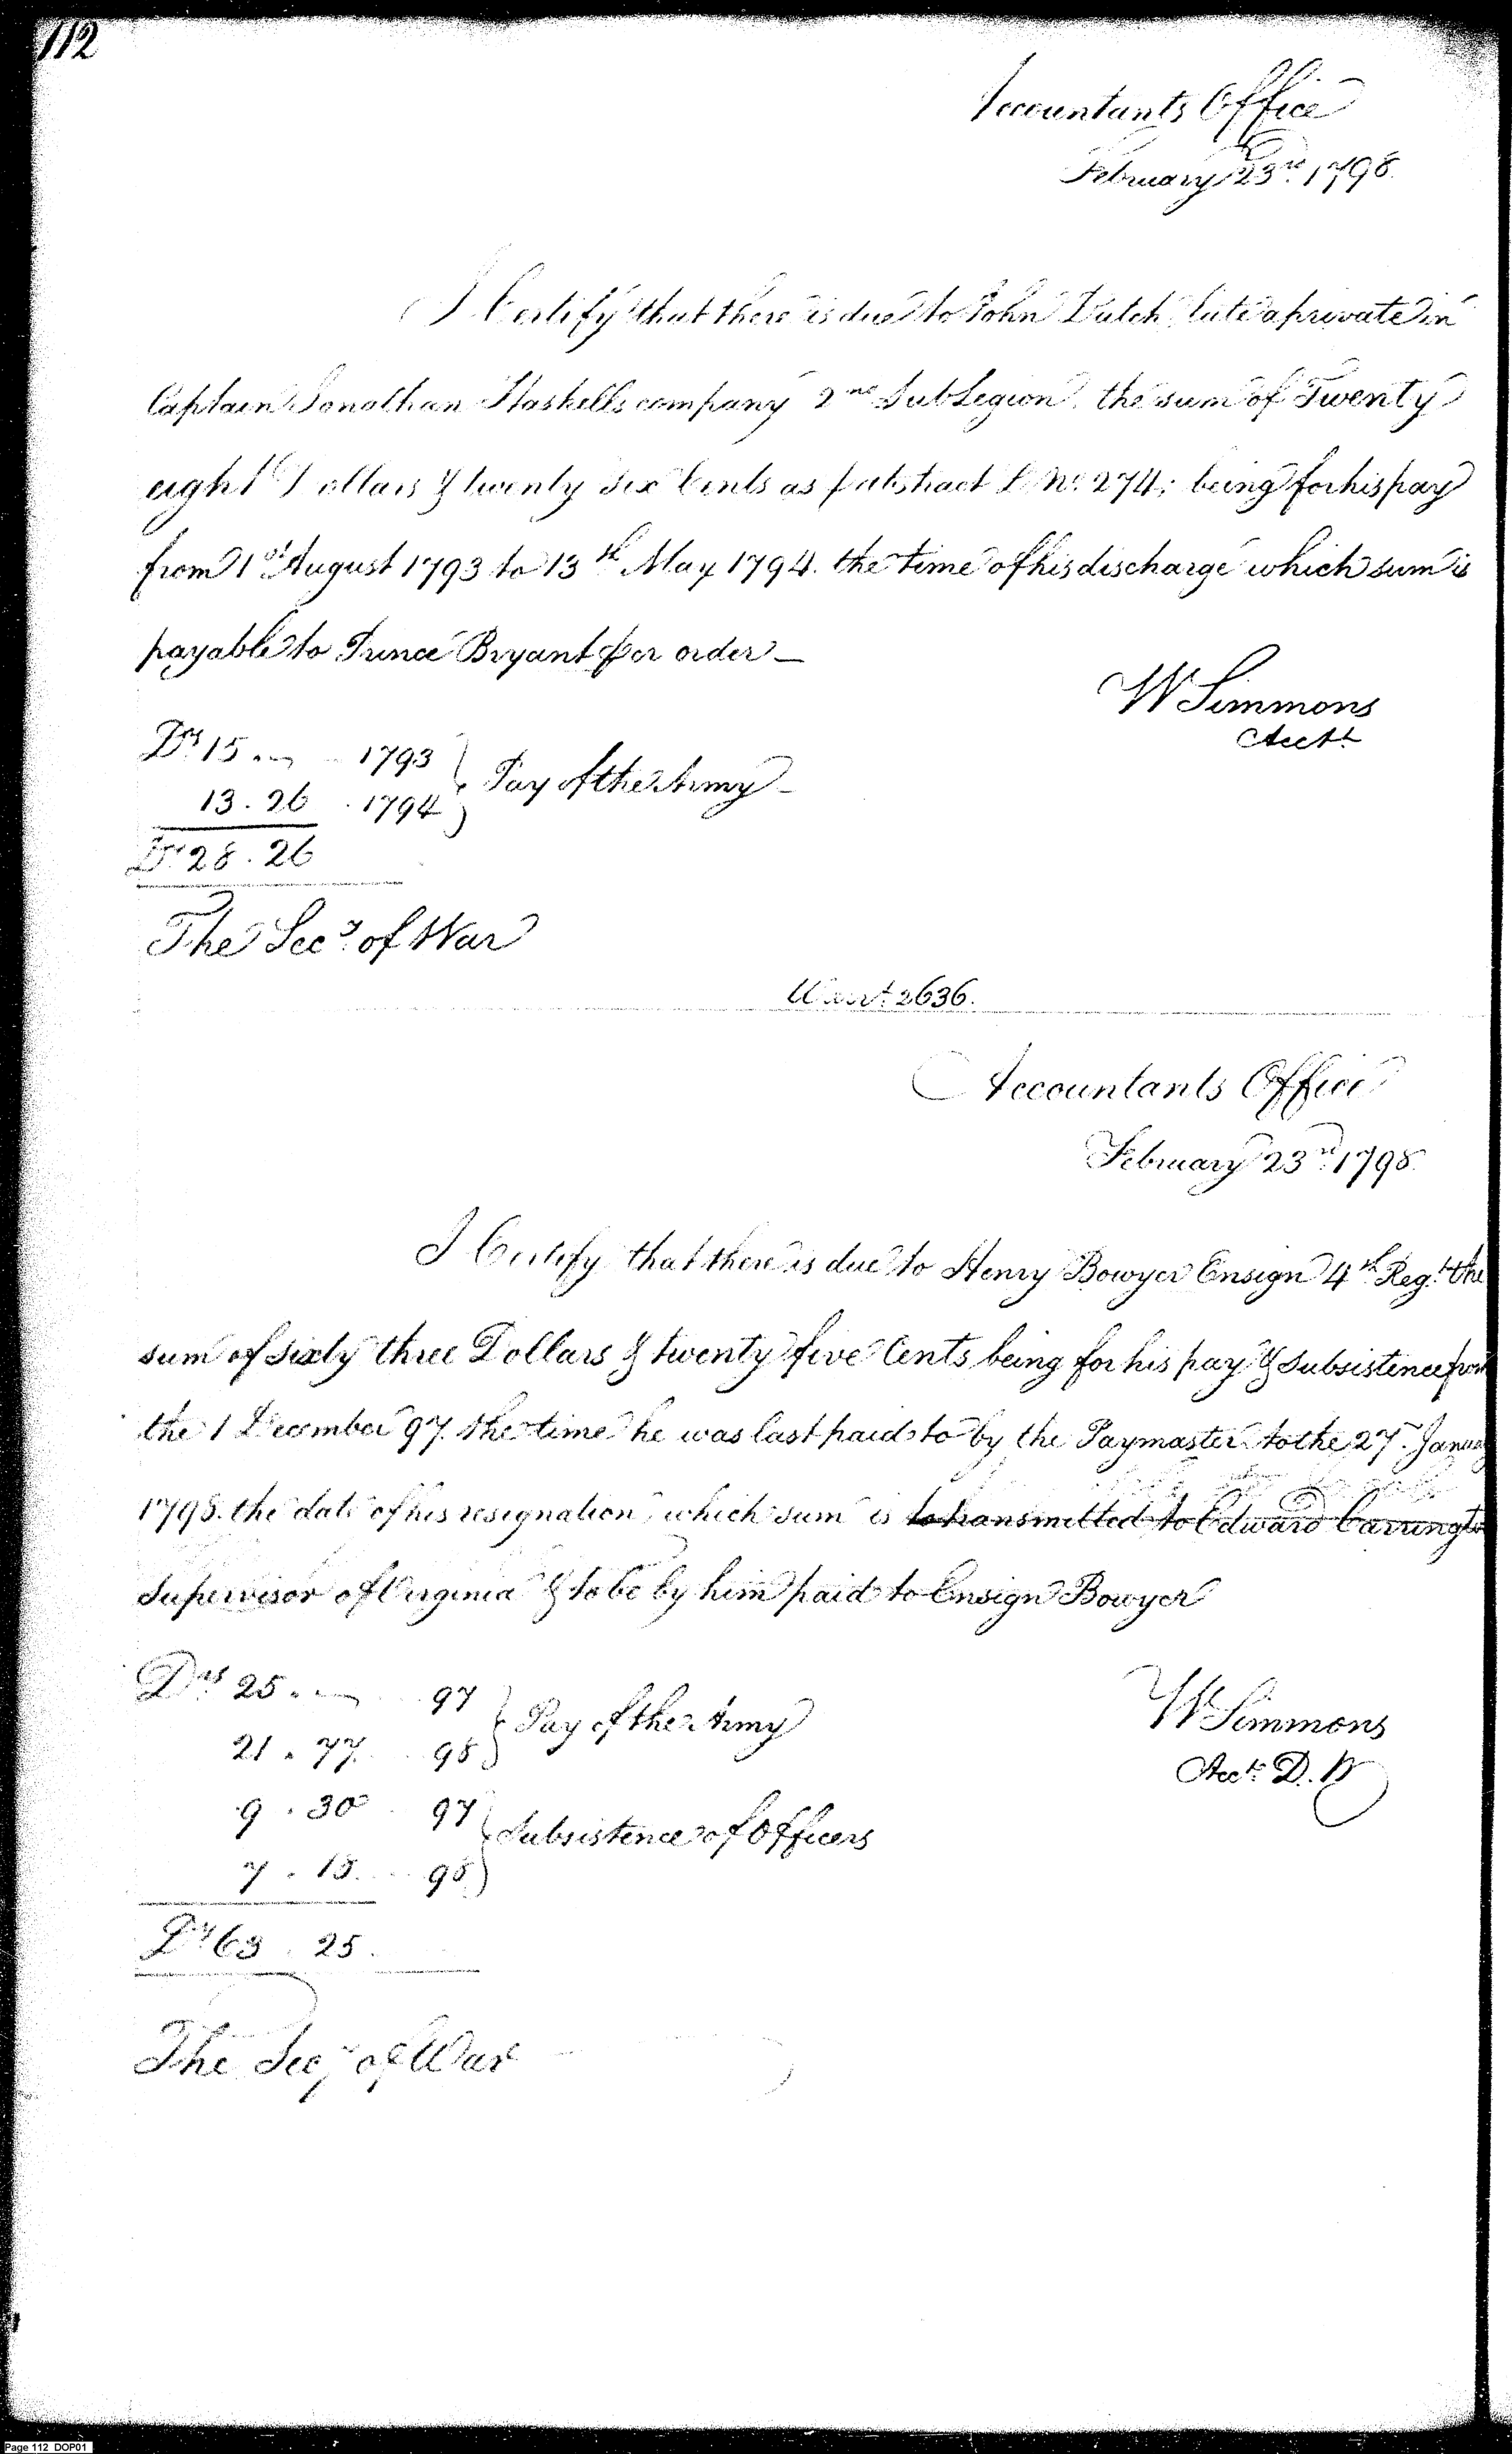 112
Accountants Office
February 23rd 1798.
I Certify that there is due to John Dutch, late a private in
Captain Jonathan Haskells company 2nd SubLegion, the sum of Twenty
eight Dollars & twenty six Cents as p abstract L No. 274; being for his pay
from 1st August 1793 to 13th May 1794. the time of his discharge which sum is
payable to Prince Bryant p or order _
W Simmons
Acct.
Drs 15 .. — 1793
13 . 26 . 1794
} Pay of the Army _
Drs 28 . 26
The Secy. of War
Warrt. 2636.
Accountants Office
February 23rd. 1798.
I Certify that there is due to Henry Bowyer Ensign 4th Regt. the
sum of sixty three Dollars & twenty five Cents being for his pay & subsistence from
the 1 December 97. the time he was last paid to by the Paymaster to the 27. January
1798. the date of his resignation, which sum is to transmitted to Edward Carrington
Supervisor of Virginia & to be by him paid to Ensign Bowyer
Drs 25 . — 97
21 . 77 . 98
} Pay of the Army
9 . 30 . 97
7 . 18 . 98
} Subsistence of Officers
Drs 63 . 25 .
W Simmons
Acct. D. W
The Secy of War
Page 112 DOP01